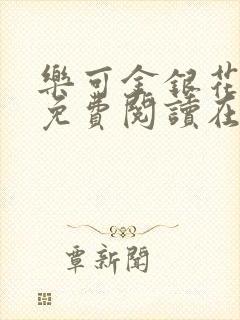 樂可金銀花
免費閱讀在
覃新聞